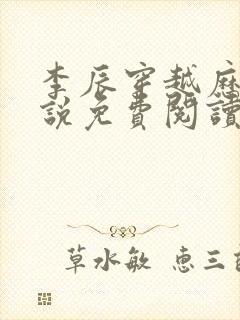 李辰穿越麻
說免費閱讀
草水敏 惠三